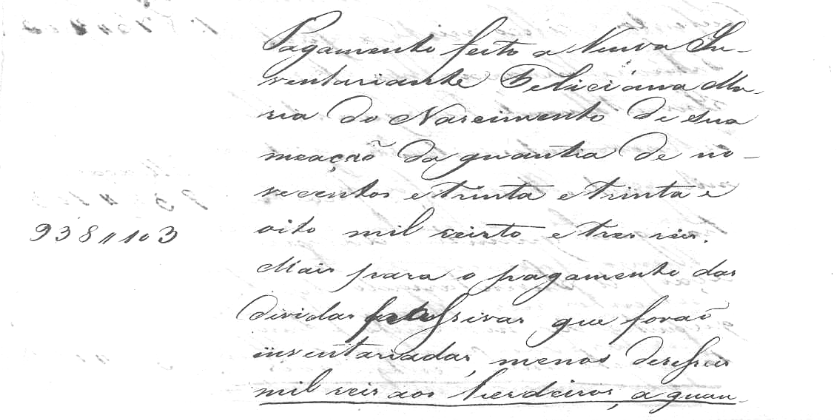 Pagamento feito a Viuva In-
ventariante Feliciana Ma-
ria do Nascimento de sua
meação da quantia de no-
vecentos e trinta e trinta e
938"103 oito mil cento e tres reis.
Mais para o pagamento das
dividas que forão
inventariadas, menos
mil reis aos herdeiros, a quan-